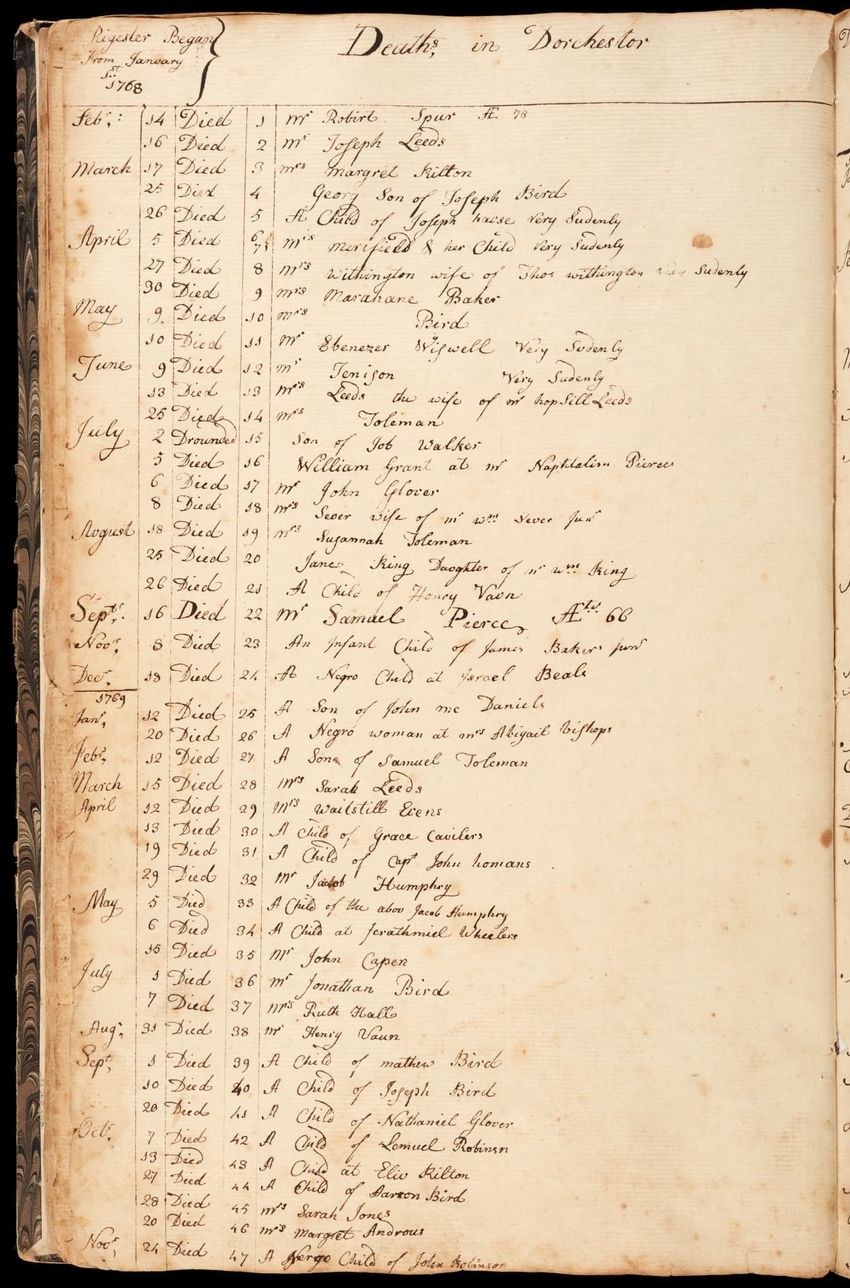 Rigester Began
From January
1st
1768
Deaths in Dorchester
Febr: 14 Died 1 mr Robirt Spur Æ 78
16 Died 2 mr Joseph Leeds
March 17 Died 3 mrs margret Kilton
25 Died 4 Georg Son of Joseph Bird
26 Died 5 A Child of Joseph hawse Very Sudenly
April 5 Died 6 7 mrs merifield & her Child Very Sudenly
27 Died 8 mrs withington wife of Thos withington very Sudenly
30 Died 9 mrs Marahane Baker
May 9 Died 10 mrs Bird
10 Died 11 mr Ebenezer Wiswell Very Sudenly
June 9 Died 12 mr Tenison Very Sudenly
13 Died 13 mrs Leeds the wife of mr hopSill Leeds
25 Died 14 mrs Toleman
July 2 Drounded 15 Son of Job Walker
5 Died 16 William Grant at mr Naphtalim Pierces
6 Died 17 mr John Glover
8 Died 18 mrs Sever wife of mr wm Sever Junr
August 18 Died 19 mrs Susannah Toleman
25 Died 20 Jane King Daughter of mr wm King
26 Died 21 A Child of Henry Vaun
Septr: 16 Died 22 mr Samuel Pierce Ætts 66
Novr 8 Died 23 An Infant Child of James Bakers junr
Decr 18 Died 24 A Negro Child at Israel Beals
1769
Janr 12 Died 25 A Son of John mc Daniels
20 Died 26 A Negro woman at mrs Abigail bishops
Febr 12 Died 27 A Son of Samuel Toleman
March 15 Died 28 Mrs Sarah Leeds
April 12 Died 29 Mrs Waitstill Evens
13 Died 30 A Child of Grace Cavilers
19 Died 31 A Child of Capt John homans
29 Died 32 Mr Jacob Humphry
May 5 Died 33 A Child of the abov Jacob Humphry
6 Died 34 A Child at Jerathmiel Wheelers
15 Died 35 Mr John Capen
July 1 Died 36 mr Jonathan Bird
7 Died 37 mrs Ruth Hall
Augt 31 Died 38 mr Henry Vaun
Sept 1 Died 39 A Child of mathew Bird
10 Died 40 A Child of Joseph Bird
20 Died 41 A Child of Nathaniel Glover
Octr 7 Died 42 A Child of Lemuel Robinson
13 Died 43 A Child at Eliv Kilton
27 Died 44 A Child of Aarron Bird
28 Died 45 mrs Sarah Jones
20 Died 46 mrs Margret Androus
Novr 24 Died 47 A Nergo Child of John Robinson